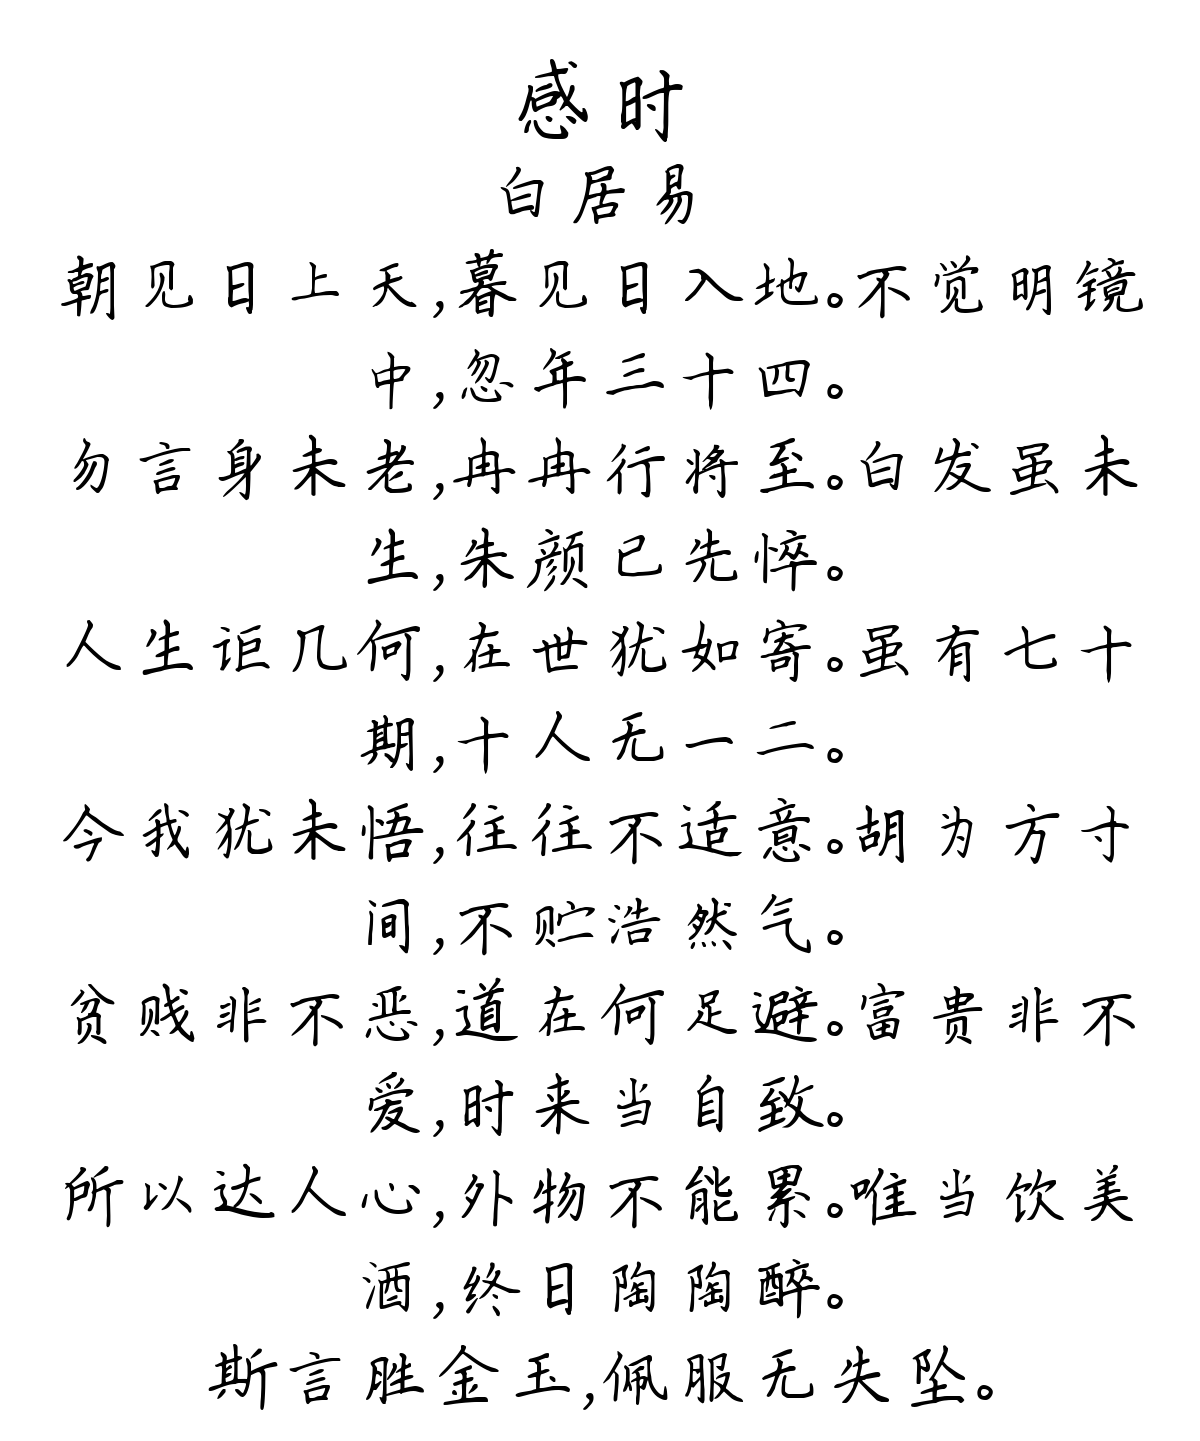 感时
白居易
朝见日上天,暮见日入地。不觉明镜
中,忽年三十四。
勿言身未老,冉冉行将至。白发虽未
生,朱颜已先悴。
人生讵几何,在世犹如寄。虽有七十
期,十人无一二。
今我犹未悟,往往不适意。胡为方寸
间,不贮浩然气。
贫贱非不恶,道在何足避。富贵非不
爱,时来当自致。
所以达人心,外物不能累。唯当饮美
酒,终日陶陶醉。
斯言胜金玉,佩服无失坠。